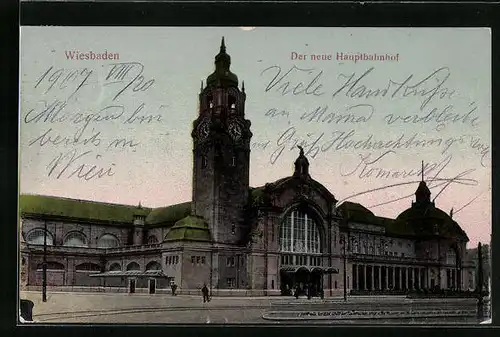 Wiesbaden
Der neue Hauptbahnhof
1907 VIII/20
Morgen bin
bereits in
Wien
Viele Handküsse
an Mama verbleibe
mit Hochachtung